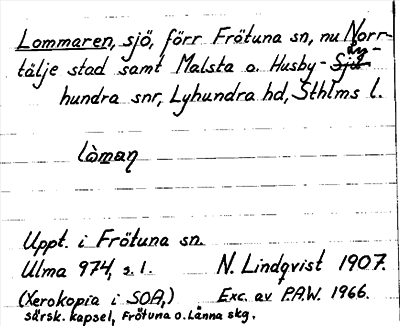 Lommaren, sjö, förr Frötuna sn, nu Norr-
tälje stad samt Malsta o. Husby-Sju Ly-
hundra snr, Lyhundra hd, Sthlms l.
lòman
Uppt. i Frötuna sn.
Ulma 974, s. 1. N. Lindqvist 1907.
(Xerokopia i SOA,) Exc. av P.A.W. 1966.
särsk. kapsel, Frötuna o. Länna skg.